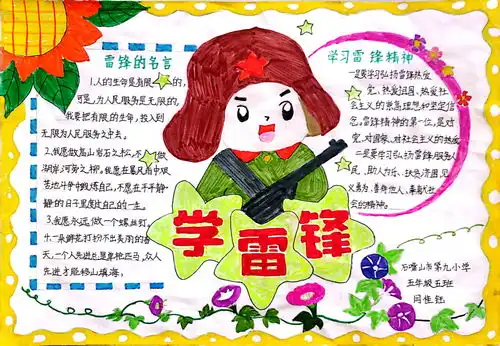 雷锋的名言
1.人的生命是有限的,
可是,为人民服务是无限的,
我要把有限的生命,投入到
无限为人民服务之中去。
2.我愿做高山岩石之松,不做
湖岸河旁之柳。我愿在暴风雨中艰
苦的斗争中锻炼自己,不愿在平平静
静的日子里度过自己的一生。
3.我愿永远做一个螺丝钉。
4.一朵鲜花打扮不出美丽的春
天,一个人先进总是单枪匹马,众人
先进才能移山填海。
学习雷锋精神
一是要学习弘扬雷锋热爱
党、热爱祖国、热爱社
会主义的崇高理想和坚定信
念,雷锋精神的第一位,是对
党、对国家、对社会主义的热爱
二是要学习弘扬雷锋服务人
民、助人为乐、扶危济困、见
义勇为、善待他人、奉献社
会的精神。
学雷锋
石嘴山市第九小学
五年级五班
闫佳钰